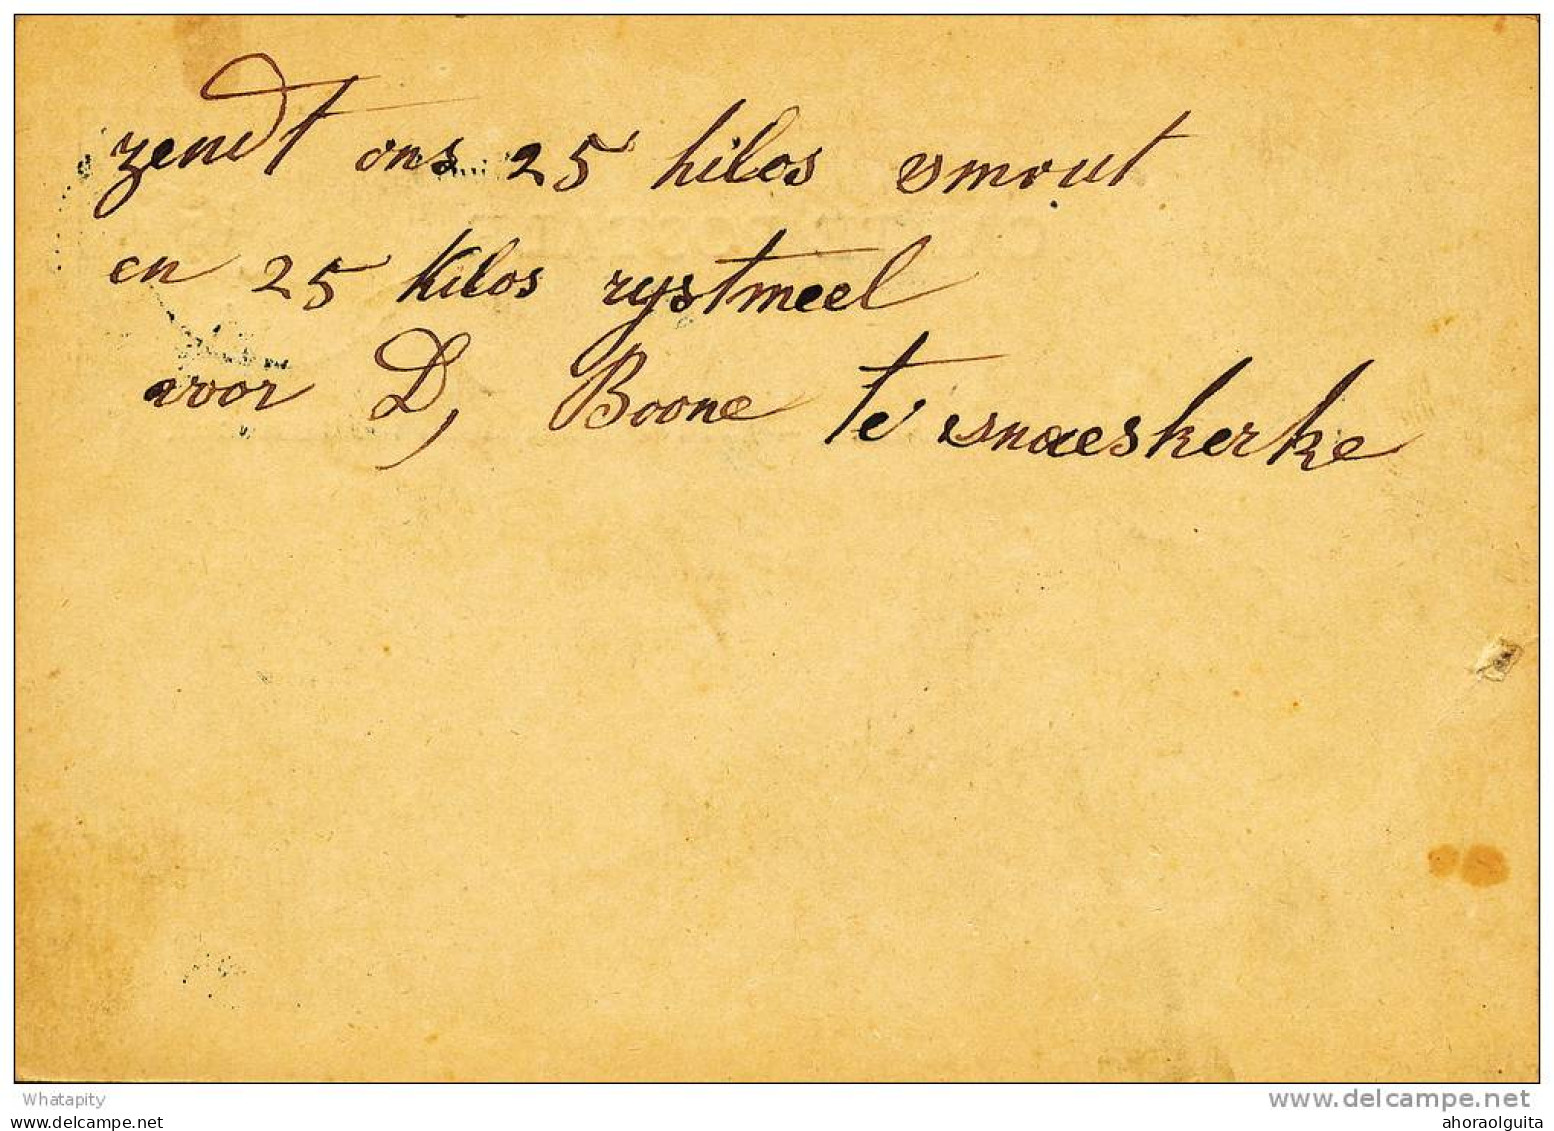 zendt ons 25 kilos smout
en 25 Kilos rystmeel
voor D, Boone te snaeskerke
Whatapity
www.delcampe.net
ahoraolguita